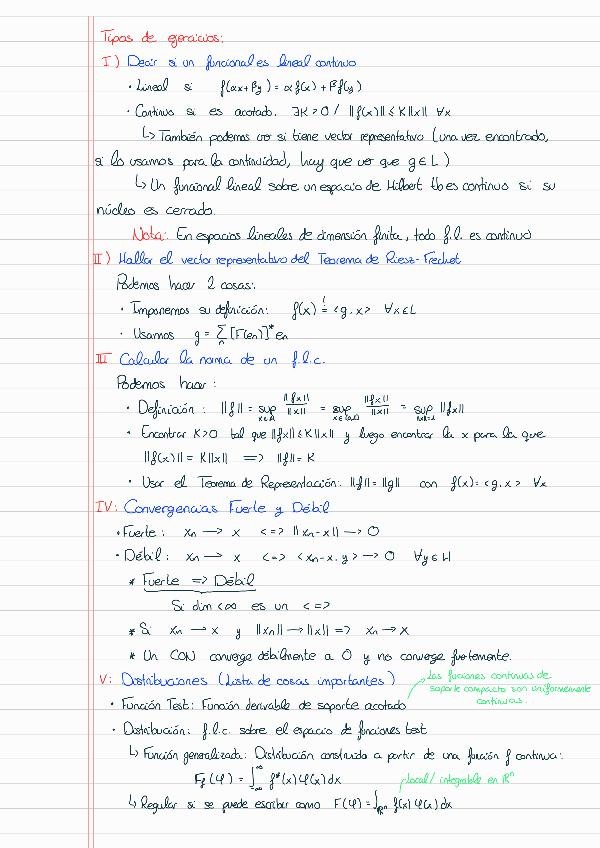 Tipos de ejercicios:
I) Decir si un funcional es lineal continuo
· Lineal si f(αx+βy) = α f(x) + β f(y)
· Continuo si es acotado. ∃K>0 / ||f(x)|| ≤ K||x|| ∀x
↳ También podemos ver si tiene vector representativo (una vez encontrado,
si lo usamos para la continuidad, hay que ver que g ∈ L)
↳ Un funcional lineal sobre un espacio de Hilbert es continuo si su
núcleo es cerrado.
Nota: En espacios lineales de dimensión finita, todo f.l. es continuo
II) Hallar el vector representativo del Teorema de Riesz-Frechet
Podemos hacer 2 cosas:
· Imponemos su definición: f(x) = <g,x> ∀x∈L
· Usamos g = Σ [F(en)]* en
III Calcular la norma de un f.l.c.
Podemos hacer:
· Definición: ||f|| = sup ||fx||/||x|| = sup ||fx||/||x|| = sup ||fx||
· Encontrar K>0 tal que ||fx|| ≤ K||x|| y luego encontrar la x para la que
||f(x)|| = K||x|| => ||f|| = K
· Usar el Teorema de Representación: ||f|| = ||g|| con f(x) = <g,x> ∀x
IV: Convergencias Fuerte y Débil
· Fuerte: xn → x <=> ||xn-x|| → 0
· Débil: xn → x <=> <xn-x, y> → 0 ∀y ∈ H
* Fuerte => Débil
Si dim <∞ es un <=>
* Si xn → x y ||xn|| → ||x|| => xn → x
* Un CON converge débilmente a 0 y no converge fuertemente.
V: Distribuciones (Lista de cosas importantes)
Las funciones continuas de
soporte compacto son uniformemente
continuas.
· Función Test: Función derivable de soporte acotado
· Distribución: f.l.c. sobre el espacio de funciones test
↳ Función generalizada: Distribución construida a partir de una función f continua:
F_f(φ) = ∫_{-∞}^{∞} f*(x) φ(x) dx
local/ integrable en ℝⁿ
↳ Regular si se puede escribir como F(φ) = ∫_{ℝⁿ} f(x) φ(x) dx